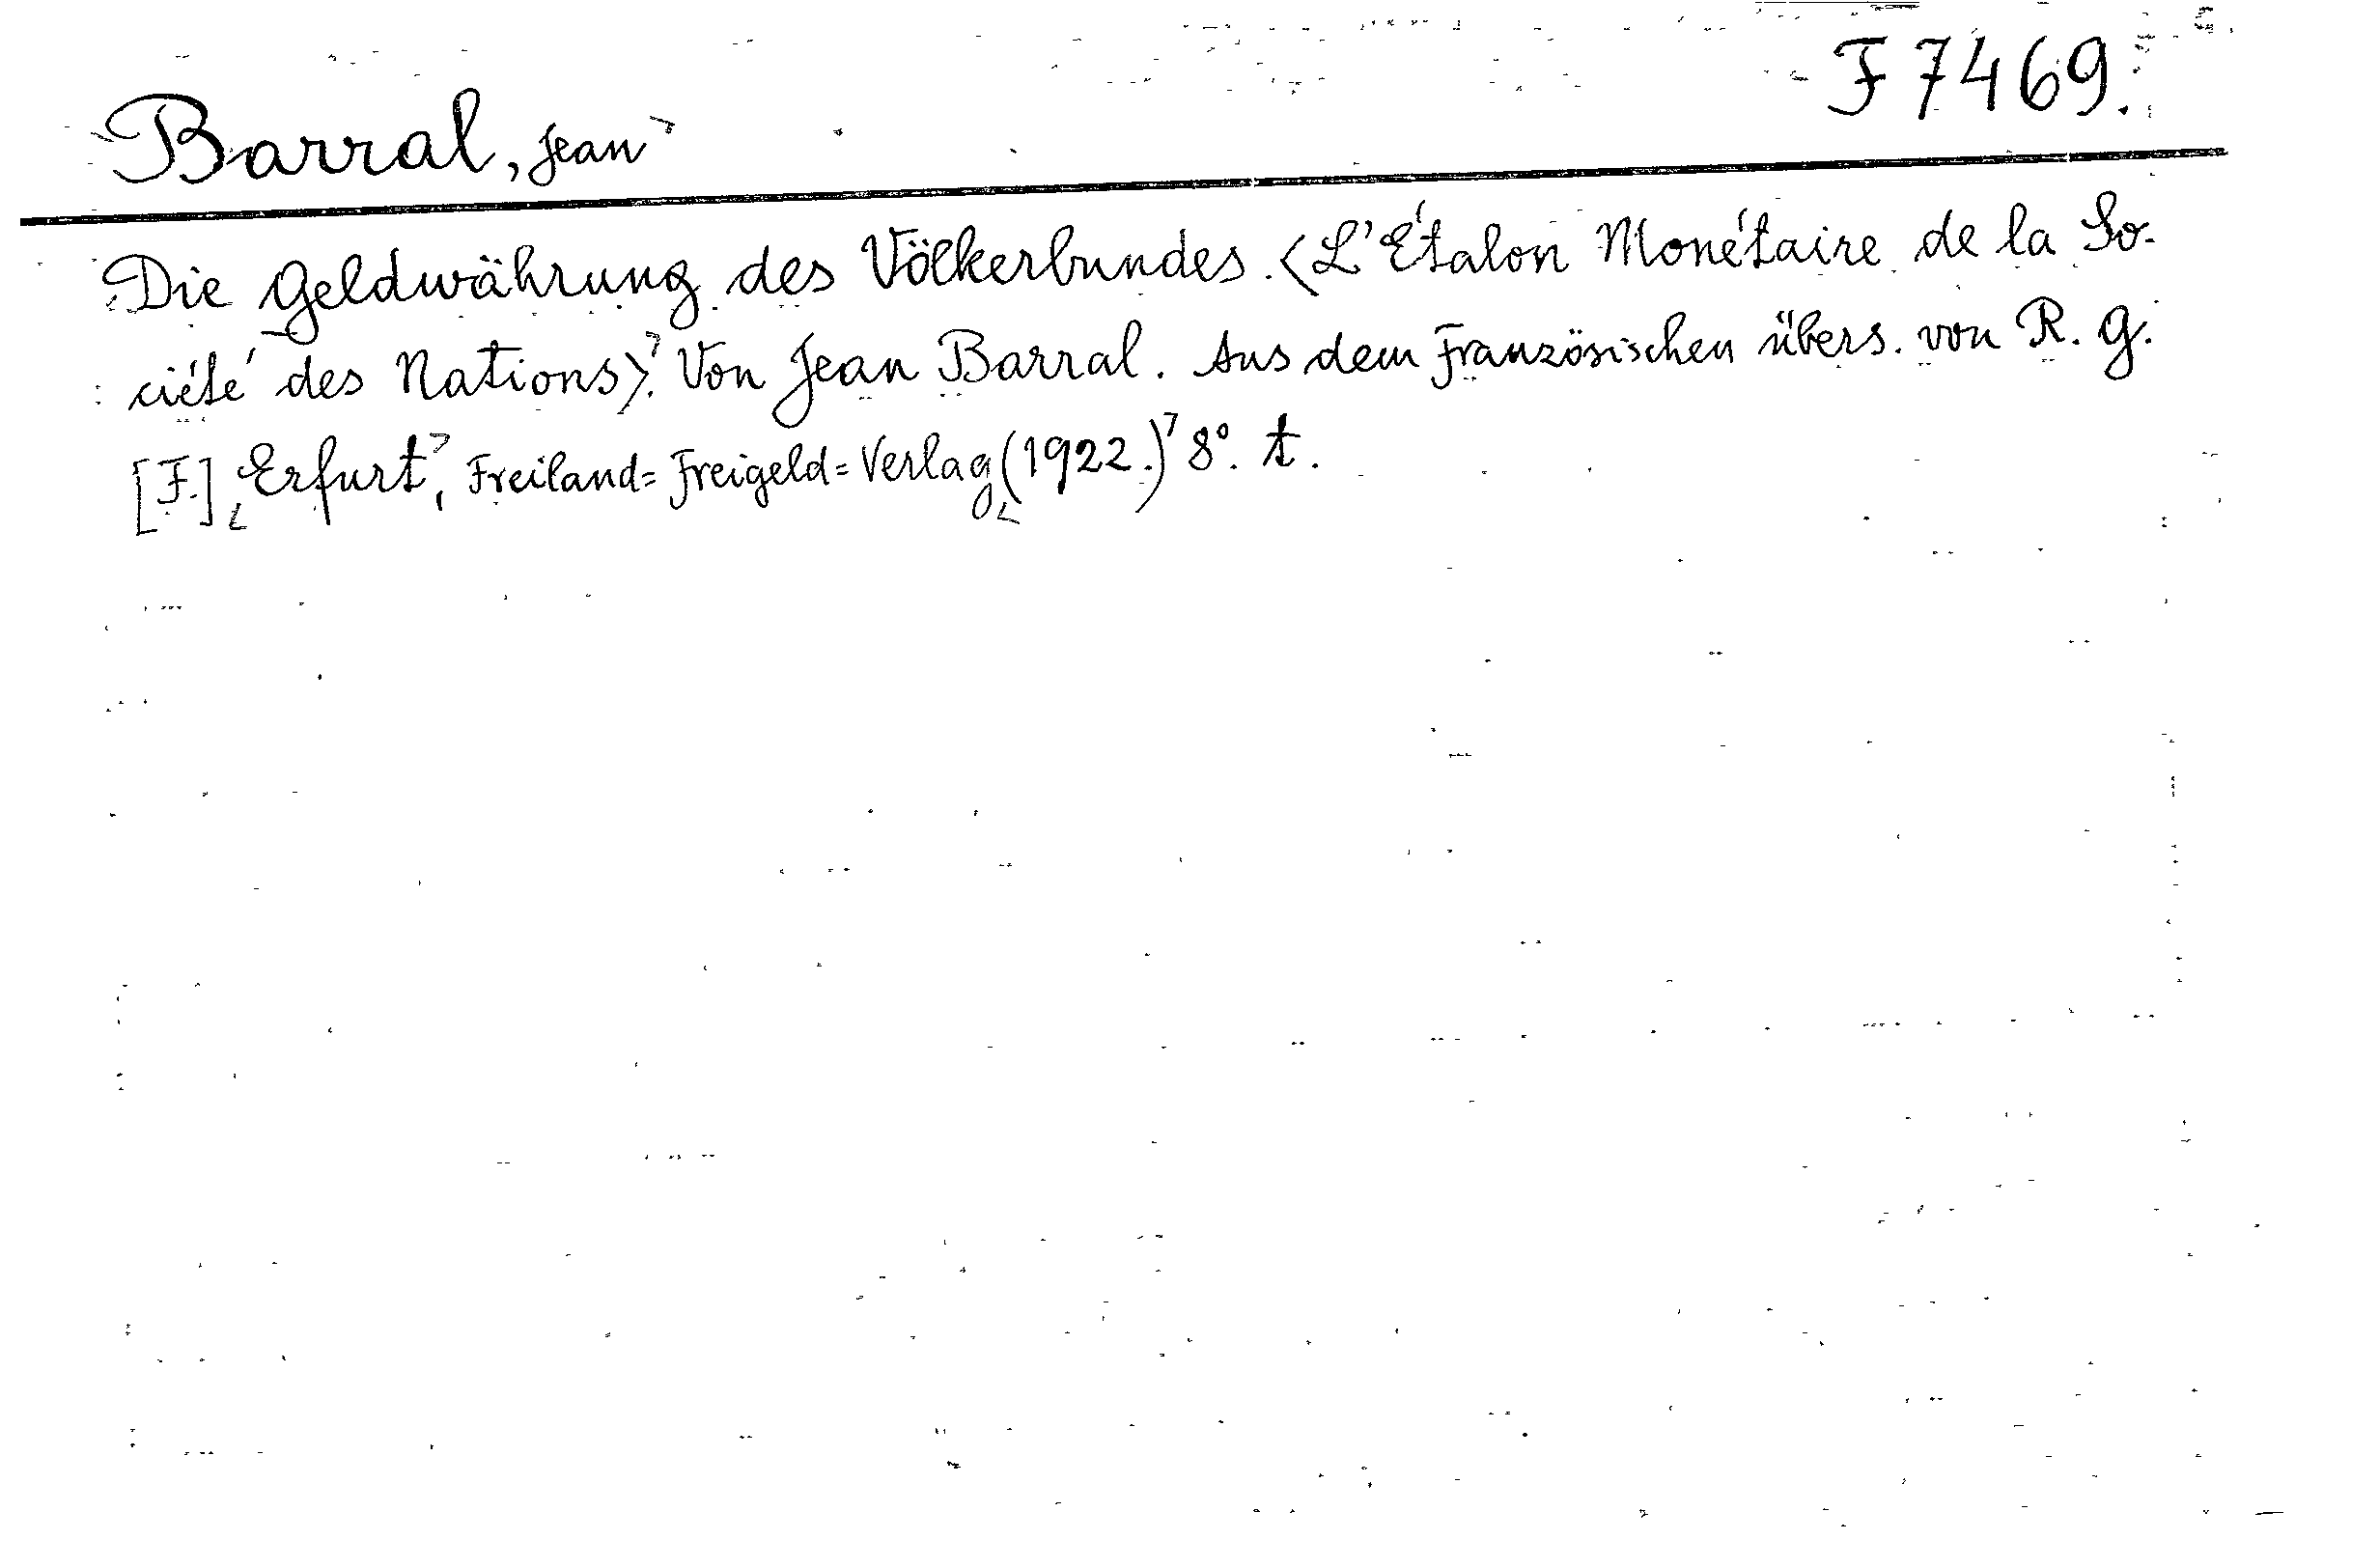 F 7469.
Barral, Jean
Die Geldwährung des Völkerbundes. <L'Étalon Monétaire de la So-
ciété des Nations>. Von Jean Barral. Aus dem Französischen übers. von R. G.
[F.] Erfurt, Freiland=Freigeld=Verlag (1922.) 8°. t.